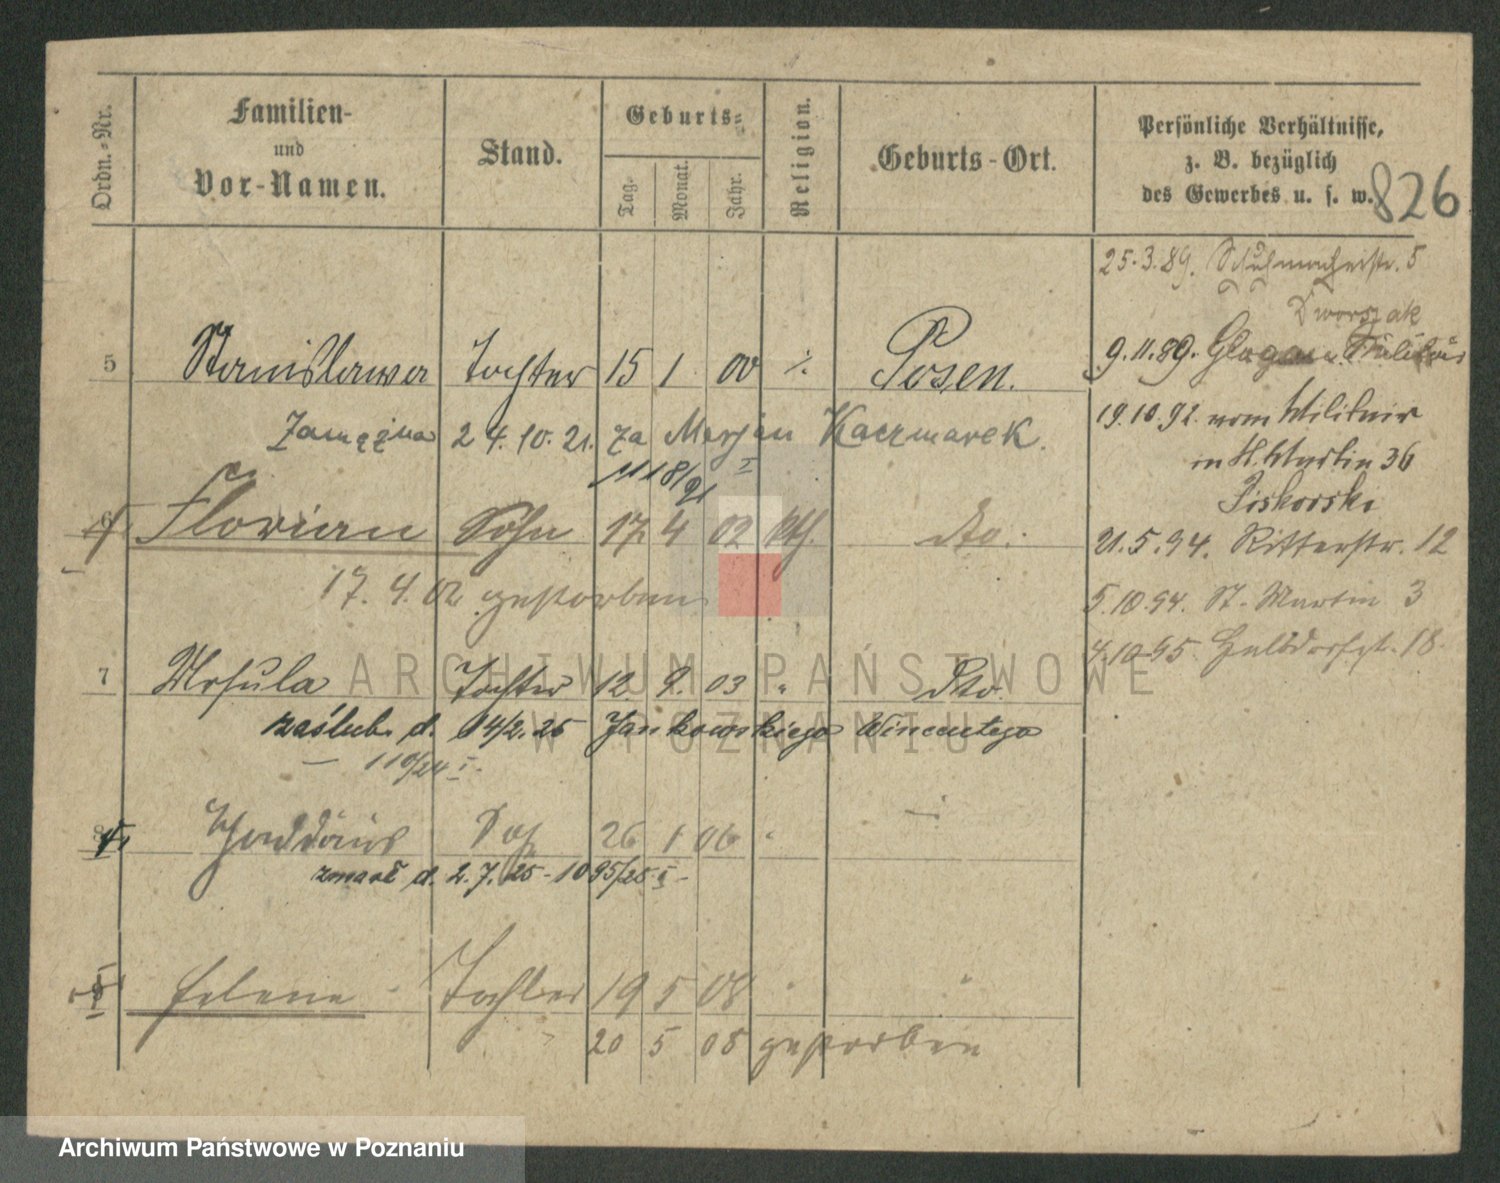 Ordn.-Nr.
Familien-
und
Vor-Namen.
Stand.
Geburts-
Tag.
Monat.
Jahr.
Religion.
Geburts-Ort.
Persönliche Verhältnisse,
z. B. bezüglich
des Gewerbes u. s. w.
826
25.3.89. Schuhmacherstr. 5
Dworszak
9.11.89. Glogau
19.10.92. vom Militair
in St. Martin 36
Piskorski
21.5.94. Ritterstr. 12
5.10.94. St. Martin 3
4.10.95. Halbdorfstr. 18.
5 Stanislawa Tochter 15 1 00 ·/. Posen.
Zamężna 24.10.21. za Marjan Kaczmarek.
1118/21 I
6 Florian Sohn 17 4 02 kth. dto.
17.4.02 gestorben
7 Ursula Tochter 12. 9. 03 " dto.
zaślub. d. 14/2.25 Jankowskiego Wincentego
— 110/24 I.
8 Thaddäus S 26 1 06 "
zmarł d. 2.7.25 - 1095/25 I -
9 Helene - Tochter 19 5 08 " "
20 5 08 gestorben
ARCHIWUM PAŃSTWOWE
W POZNANIU
Archiwum Państwowe w Poznaniu